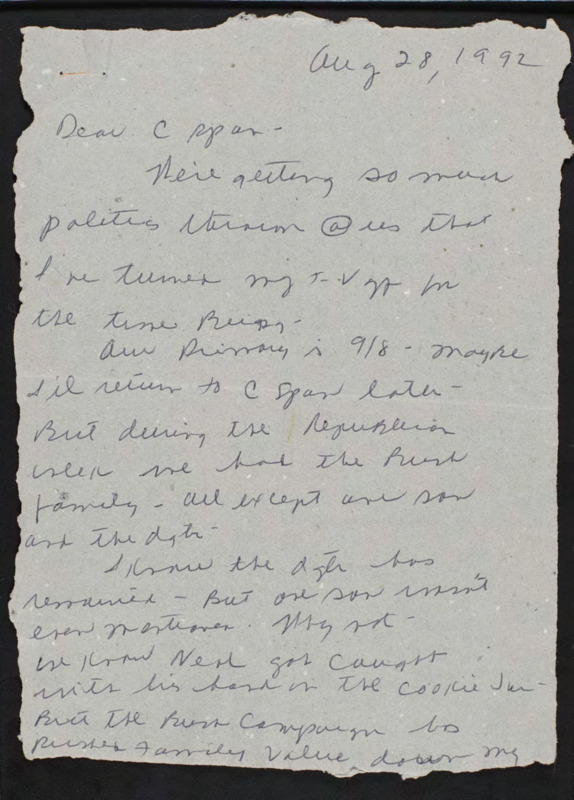 Aug 28, 1992
Dear C Span -
We're getting so much
politics thrown @ us that
I've turned my T-V off for
the time Being -
Our Primary is 9/8 - maybe
I'll return to C Span later -
But during the Republican
week we had the Bush
family - all except one son
and the dgtr -
I know the dgtr has
remarried - But one son wasn't
even mentioned. Why not -
we know Neil got caught
with his hand in the cookie Jar -
But the Bush Campaign has
Pushed Family Value down my